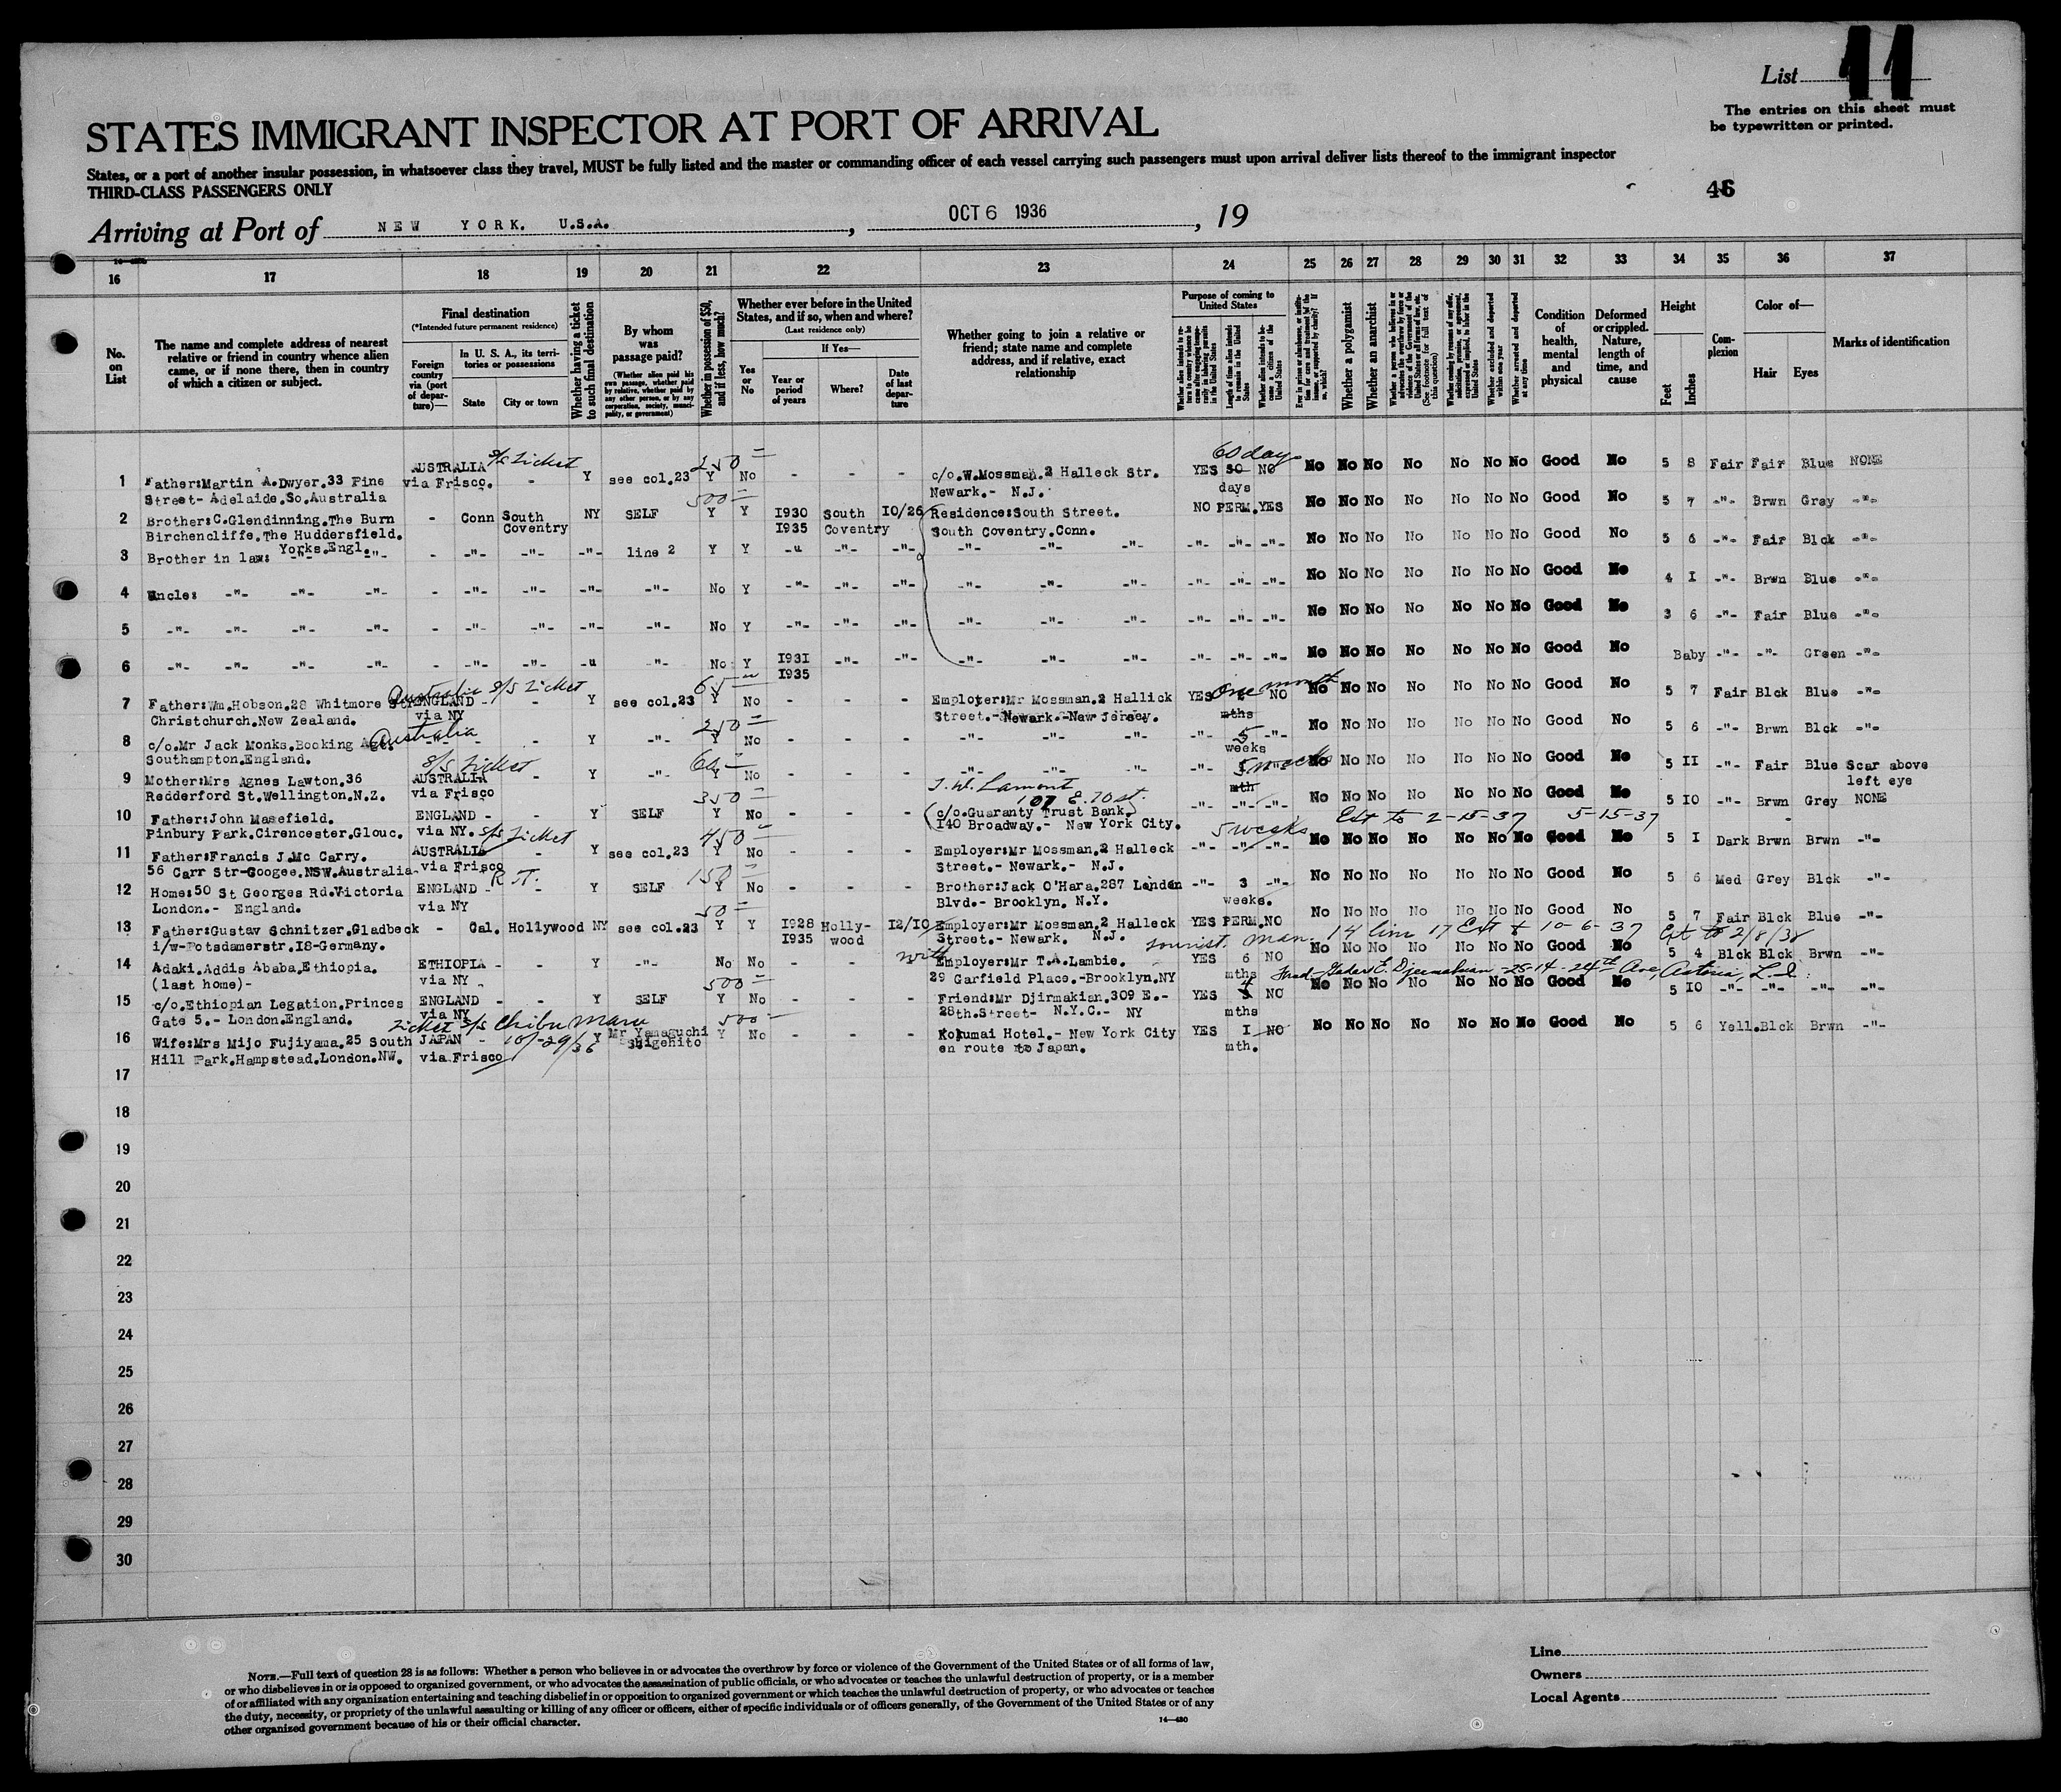 List 11
The entries on this sheet must
be typewritten or printed.
STATES IMMIGRANT INSPECTOR AT PORT OF ARRIVAL
States, or a port of another insular possession, in whatsoever class they travel, MUST be fully listed and the master or commanding officer of each vessel carrying such passengers must upon arrival deliver lists thereof to the immigrant inspector
THIRD-CLASS PASSENGERS ONLY
46
Arriving at Port of NEW YORK. U.S.A. , OCT 6 1936 , 19
16 17 18 19 20 21 22 23 24 25 26 27 28 29 30 31 32 33 34 35 36 37
No. on List
The name and complete address of nearest relative or friend in country whence alien came, or if none there, then in country of which a citizen or subject.
Final destination
(*Intended future permanent residence)
Foreign country via (port of departure)—
In U. S. A., its territories or possessions
State
City or town
Whether having a ticket to such final destination
By whom was passage paid?
(Whether alien paid his own passage, whether paid by relative, whether paid by any other person, or by any corporation, society, municipality, or government)
Whether in possession of $50, and if less, how much?
Whether ever before in the United States, and if so, when and where?
(Last residence only)
Yes or No
If Yes—
Year or period of years
Where?
Date of last departure
Whether going to join a relative or friend; state name and complete address, and if relative, exact relationship
Purpose of coming to United States
Whether alien intends to return to country whence he came after engaging temporarily in laboring pursuits in the United States
Length of time alien intends to remain in the United States
Whether alien intends to become a citizen of the United States
Ever in prison or almshouse, or institution for care and treatment of the insane, or supported by charity? If so, which?
Whether a polygamist
Whether an anarchist
Whether a person who believes in or advocates the overthrow by force or violence of the Government of the United States or all forms of law, etc. (See footnote for full text of this question)
Whether coming by reason of any offer, solicitation, promise, or agreement, expressed or implied, to labor in the United States
Whether excluded and deported within one year
Whether arrested and deported at any time
Condition of health, mental and physical
Deformed or crippled. Nature, length of time, and cause
Height
Feet
Inches
Complexion
Color of—
Hair Eyes
Marks of identification
s/s ticket 250 = 60 days
1 Father:Martin A.Dwyer.33 Pine AUSTRALIA - Y see col.23 Y No - - - c/o.W.Mossman.2 Halleck Str. YES 30 NO No No No No No No No Good No 5 8 Fair Fair Blue NONE
Street- Adelaide.So.Australia via Frisco. Newark.- N.J. days
500 =
2 Brother:C.Glendinning.The Burn - Conn South NY SELF Y Y 1930 South 10/26 Residence:South Street. NO PERM.YES No No No No No No No Good No 5 7 -"- Brwn Gray -"-
Birchencliffe.The Huddersfield. Coventry 1935 Coventry South Coventry.Conn.
Yorks.Engl.
3 Brother in law: -"- -"- - -"- -"- -"- line 2 Y Y -"- -"- -"- -"- -"- -"- -"- -"- -"- No No No No No No No Good No 5 6 -"- Fair Blck -"-
4 Uncle: -"- -"- -"- - -"- -"- -"- -"- No Y -"- -"- -"- -"- -"- -"- -"- -"- -"- No No No No No No No Good No 4 1 -"- Brwn Blue -"-
5 -"- -"- -"- -"- - -"- -"- -"- -"- No Y -"- -"- -"- -"- -"- -"- -"- -"- -"- No No No No No No No Good No 3 6 -"- Fair Blue -"-
6 -"- -"- -"- -"- - -"- -"- -"- -"- No Y 1931 -"- -"- -"- -"- -"- -"- -"- -"- No No No No No No No Good No Baby -"- -"- Green -"-
1935
Australia s/s ticket 65 = one month
7 Father:Wm.Hobson.28 Whitmore St. ENGLAND - - Y see col.23 Y No - - - Employer:Mr Mossman.2 Hallick YES NO No No No No No No No Good No 5 7 Fair Blck Blue -"-
Christchurch.New Zealand. via NY Street.-Newark.-New Jersey. mths
Australia 250 =
8 c/o.Mr Jack Monks.Booking Agt. -"- - - Y -"- Y No - - - -"- -"- -"- -"- 5 -"- No No No No No No No Good No 5 6 -"- Brwn Blck -"-
Southampton.England. weeks
s/s ticket 60 = 5 weeks
9 Mother:Mrs Agnes Lawton.36 AUSTRALIA - Y -"- Y No - - - -"- -"- -"- -"- 1 -"- No No No No No No No Good No 5 11 -"- Fair Blue Scar above
Redderford St.Wellington.N.Z. via Frisco mth left eye
350 = T. W. Lamont 107 E. 70 st.
10 Father:John Masefield. ENGLAND - - Y SELF Y No - - - c/o.Guaranty Trust Bank. -"- -"- -"- No No No No No No No Good No 5 10 -"- Brwn Grey NONE
Pinbury Park.Cirencester.Glouc. via NY. 140 Broadway.- New York City. Ext to 2-15-37 5-15-37
s/s ticket 450 = 5 weeks
11 Father:Francis J.Mc Carry. AUSTRALIA - Y see col.23 Y No - - - Employer:Mr Mossman.2 Halleck -"- -"- -"- No No No No No No No Good No 5 1 Dark Brwn Brwn -"-
56 Carr Str-Coogee.NSW.Australia. via Frisco Street.- Newark.- N.J.
R.T. 150 =
12 Home:50 St Georges Rd.Victoria ENGLAND - - Y SELF Y No - - - Brother:Jack O'Hara.287 Lenden -"- 3 -"- No No No No No No No Good No 5 6 Med Grey Blck -"-
London.- England. via NY Blvd.- Brooklyn. N.Y. weeks.
50 =
13 Father:Gustav Schnitzer.Gladbeck - Cal. Hollywood NY see col.23 Y Y 1928 Holly- 12/10 Employer:Mr Mossman.2 Halleck YES PERM.NO No No No No No No No Good No 5 7 Fair Blck Blue -"-
i/w-Potsdamerstr.18-Germany. 1935 wood Street.- Newark. N.J.
tourist man. 14 line 17 Ext to 10-6-37 Ext to 2/8/38
with
14 Adaki.Addis Ababa.Ethiopia. ETHIOPIA - - Y -"- No No - - - Employer:Mr T.A.Lambie. YES 6 NO No No No No No No No Good No 5 4 Blck Blck Brwn -"-
(last home)- via NY 29 Garfield Place.-Brooklyn.NY mths
500 = E. Djermakian 25-14-24th Ave, Astoria, L.I.
15 c/o.Ethiopian Legation.Princes ENGLAND - - Y SELF Y No - - - Friend:Mr Djirmakian.309 E.- YES 4 NO No No No No No No No Good No 5 10 -"- -"- -"- -"-
Gate 5.- London.England. via NY 28th.Street- N.Y.C.- NY mths
ticket s/s Chibu Maru 10/29/36 500 =
16 Wife:Mrs Mijo Fujiyama.25 South JAPAN - Y Mr Yamaguchi Y No - - - Kokumai Hotel.- New York City YES 1 NO No No No No No No No Good No 5 6 Yell.Blck Brwn -"-
Hill Park.Hampstead.London.NW. via Frisco Shigehito en route to Japan. mth.
17
18
19
20
21
22
23
24
25
26
27
28
29
30
NOTE.—Full text of question 28 is as follows: Whether a person who believes in or advocates the overthrow by force or violence of the Government of the United States or of all forms of law,
or who disbelieves in or is opposed to organized government, or who advocates the assassination of public officials, or who advocates or teaches the unlawful destruction of property, or is a member
of or affiliated with any organization entertaining and teaching disbelief in or opposition to organized government or which teaches the unlawful destruction of property, or who advocates or teaches
the duty, necessity, or propriety of the unlawful assaulting or killing of any officer or officers, either of specific individuals or of officers generally, of the Government of the United States or of any
other organized government because of his or their official character.
14—480
Line
Owners
Local Agents